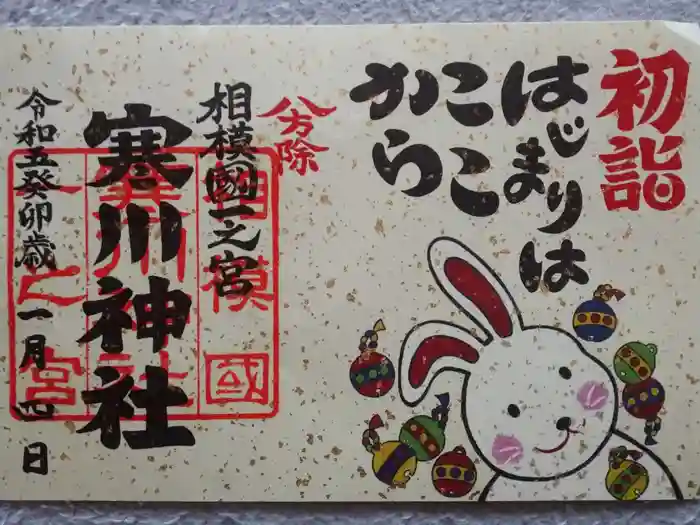 初詣
はじまりは
ここ
から
八方除
相模國一之宮
寒川神社
令和五癸卯歳 一月四日
相模國
一之宮